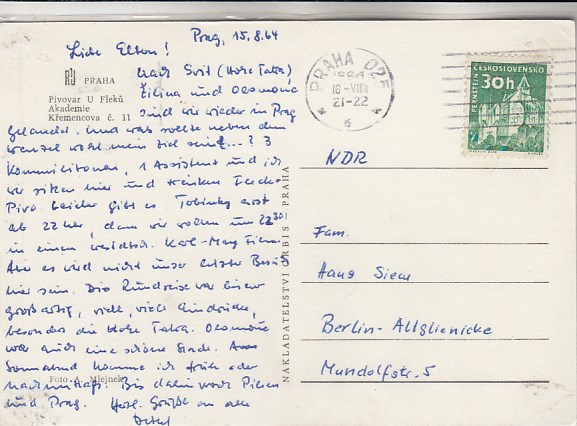 Prag, 15.8.64
Liebe Eltern!
PRAHA
Pivovar U Fleků
Akademie
Křemencova č. 11
nach Svit (Hohe Tatra)
Žilina und Olomouc
sind wir wieder in Prag
gelandet. Und was sollte neben dem
Wenzel wohl mein Ziel sein? 3
Kommilitonen, 1 Assistent und ich
wir sitzen hier und trinken Flecke-
Pivo. Leider gibt es erst
ab 22 Uhr, denn wir wollen um 22 30
in einen westdtsch. Karl-May Film.
Aber es wird nicht unser letzter Besuch
hier sein. Die Rundreise war bisher
großartig, viele, viele Eindrücke,
besonders die Hohe Tatra. Olomouc
war auch eine schöne Stadt.
Sonnabend komme ich früh oder
nachmittags. Bis dahin noch Pilsen
und Prag. Herzl. Grüße an alle
Foto A. Mlejnek
NAKLADATELSTVÍ ORBIS - PRAHA
PRAHA 025
16-VIII
21-22
6
ČESKOSLOVENSKO
30h
PERNŠTEJN
NDR
Fam.
Hans Siem
Berlin-Altglienicke
Mandolfstr. 5